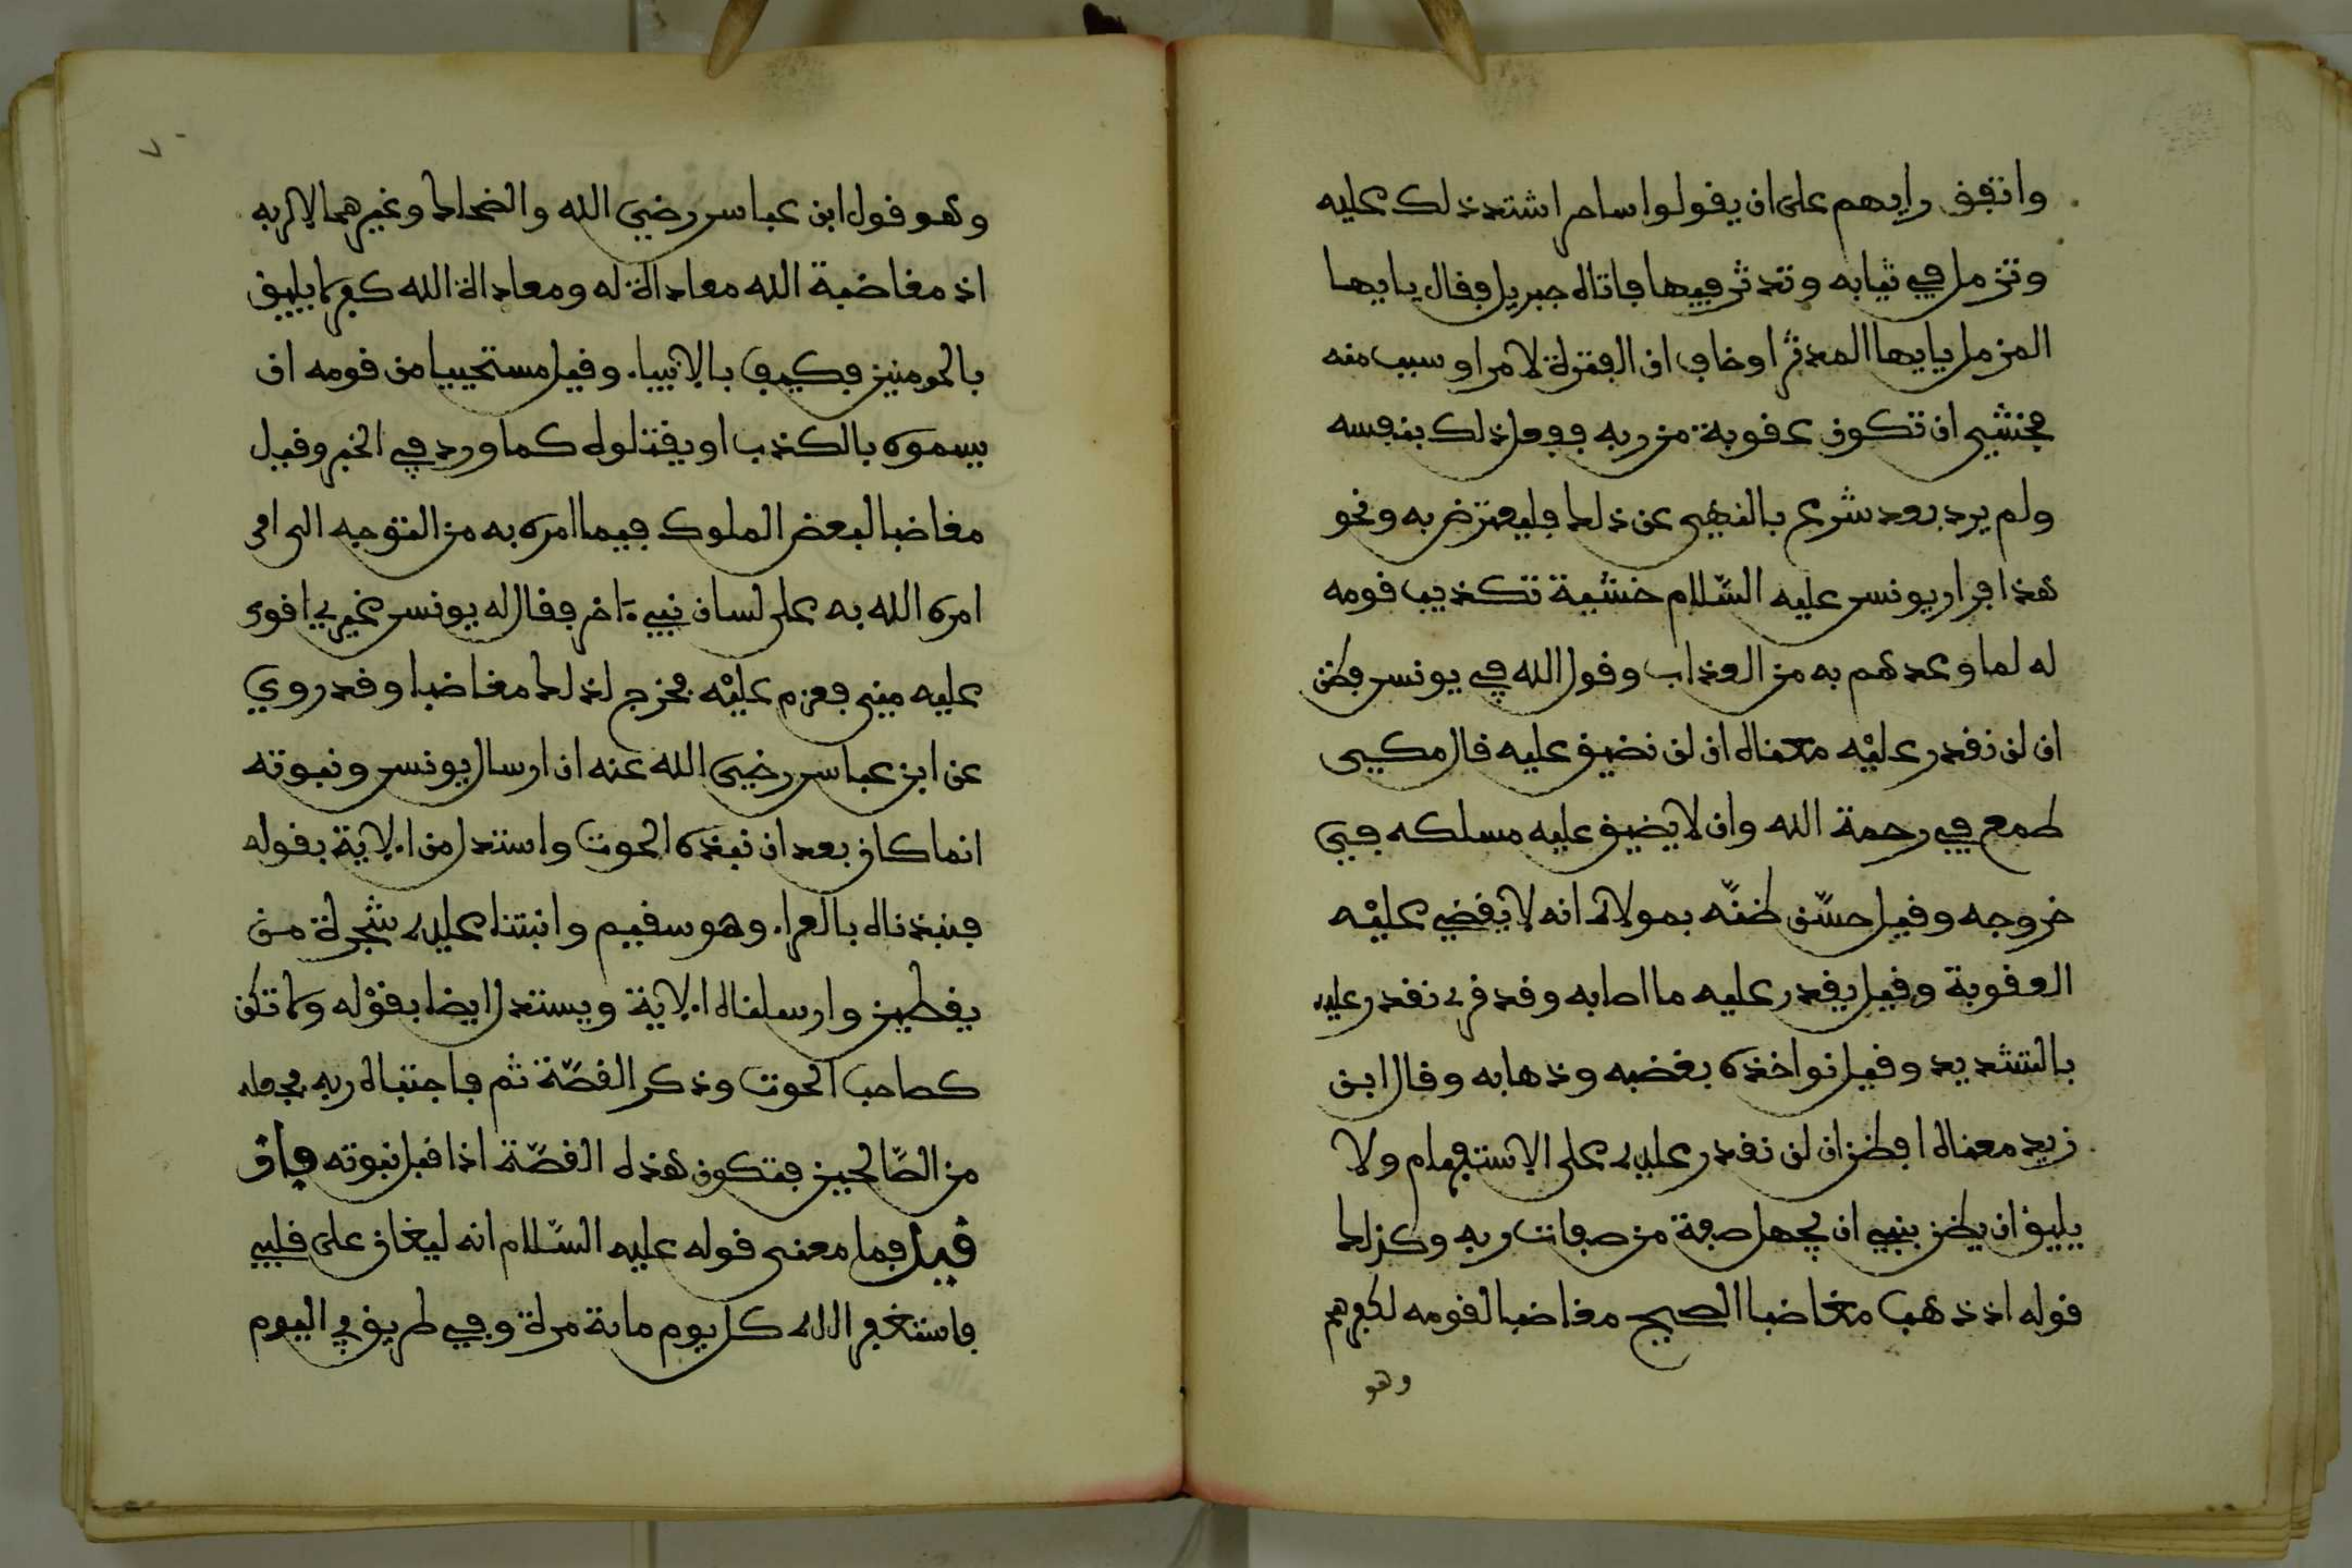 واتفق رايهم على ان يقولوا ساحر اشتد ذلك عليه
وتزمل في ثيابه وتدثر فيها فاتاه جبريل فقال يايها
المزمل يايها المدثر او خاف ان الفترة لامر او سبب منه
فخشي ان تكون عقوبة من ربه ففعل ذلك بنفسه
ولم يرد بعد شرع بالنهي عن ذلك فيعترض به ونحو
هذا فرار يونس عليه السّلام خشية تكذيب قومه
له لما وعدهم به من العذاب وقول الله في يونس فظن
ان لن نقدر عليْه معناه ان لن نضيق عليه قال مكي
طمع في رحمة الله وان لا يضيق عليه مسلكه في
خروجه وقيل حسّن ظنّه بمولاه انه لا يقضي عليْه
العقوبة وقيل يقدر عليه ما اصابه وقد قرئ نقدر عليه
بالتشديد وقيل نواخذه بغضبه وذهابه وقال ابن
زيد معناه افظن ان لن نقدر عليه على الاستفهام ولا
يليق ان يظن بنبي ان يجهل صفة من صفات ربه وكذلك
قوله اذ ذهب مغاضبا الصحيح مغاضبا لقومه لكفرهم
وهو
وهو قول ابن عباس رضي الله والضحاك وغيرهما لا لربه
اذ مغاضبة الله معاداة له ومعاداة الله كفر لا يليق
بالمومنين فكيف بالانبياء وقيل مستحييا من قومه ان
يسموه بالكذب او يقتلوه كما ورد في الخبر وقيل
مغاضبا لبعض الملوك فيما امره به من التوجه الى امر
امره الله به على لسان نبيء اخر فقال له يونس غيري اقوى
عليه مني فعزم عليْه فخرج لذلك مغاضبا وقد روي
عن ابن عباس رضي الله عنه ان ارسال يونس ونبوته
انما كان بعد ان نبذه الحوت واستدل من الاية بقوله
فنبذناه بالعراء وهو سقيم وانبتنا عليه شجرة من
يقطين وارسلناه الاية ويستدل ايضا بقوْله ولا تكن
كصاحب الحوت وذكر القصّة ثم فاجتباه ربه فجعله
من الصّالحين فتكون هذه القصّة اذا قبل نبوته فان
قيل فما معنى قوله عليه السّلام انه ليغان على قلبي
فاستغفر الله كل يوم ماية مرة وفي طريق في اليوم